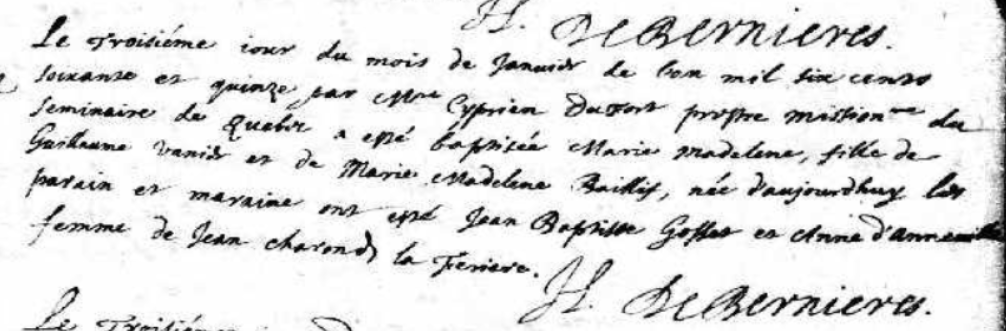 H. DeBernieres.
Le Troisiéme iour du mois de Janvier de l'an mil six cents
soixante et quinze par Mre Cyprien Dufort prestre missionre du
seminaire de Quebec a esté baptisée Marie Madelene, fille de
Guillaume Vanier et de Marie Madelene Baillif, née d'aujourdhuy les
parain et maraine ont esté Jean Baptiste Gosset et Anne d'Anneville
femme de Jean charon dt la Feriere.
H. DeBernieres.
Le Troisiéme